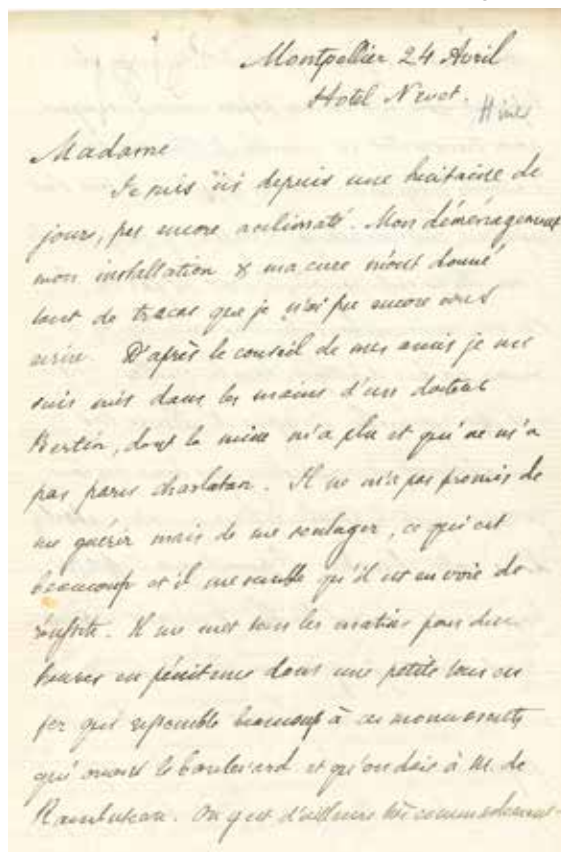 Montpellier 24 Avril
Hotel Nevet.
Madame
Je suis ici depuis une huitaine de
jours, pas encore acclimaté. Mon déménagement
mon installation & ma cure m'ont donné
tant de tracas que je n'ai pu encore vous
écrire. D'après le conseil de mes amis je me
suis mis dans les mains d'un docteur
Bertin, dont la mine m'a plu et qui ne m'a
pas paru charlatan. Il ne m'a pas promis de
me guérir mais de me soulager, ce qui est
beaucoup et il me semble qu'il est en voie de
réussite. Il me met tous les matins pour deux
heures en pénitence dans une petite tour en
fer qui ressemble beaucoup à ces monuments
qui ornent le boulevard et qu'on doit à M. de
Rambuteau. On y est d'ailleurs très commodément